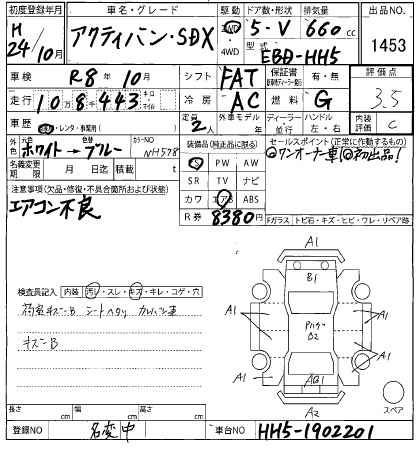 初度登録年月 車名・グレード 駆動 ドア数・形状 排気量 出品NO.
H 24/10月 アクティバン・SDX 2WD 4WD 5-V 660 cc 1453
型式 EBD-HH5
車検 R8年10月 シフト FAT 保証書 有・無 評価点 3.5
走行 10万8千443 キロ マイル 冷房 AC 燃料 G
車歴 レンタ・事業用( ) 定員 2人 外車モデル 年 ディーラー・並行 ハンドル 左・右 内装評価 C
外色 元色 ホワイト→ 色替 ブルー カラーNO NH578 装備品(純正品に限る) セールスポイント(正常に作動するもの)
◎ワンオーナー車!◎初出品!
名義変更期限 月 日迄 積載 t
PS PW AW
SR TV ナビ
カワ エアB ABS
R券 8380円
注意事項(欠品・修復・不具合箇所および状態)
エアコン不良
Fガラス トビ石・キズ・ヒビ・ワレ・リペア跡
検査員記入 内装 汚レ・スレ・キズ・キレ・コゲ・穴
シートヘタリ
キズB
A1
B1
A1 A1
B2
A1 A1
A1 AB1 A1
A2
スペア
長さ cm 幅 cm 高さ cm
登録NO 名変中 車台NO HH5-1902201